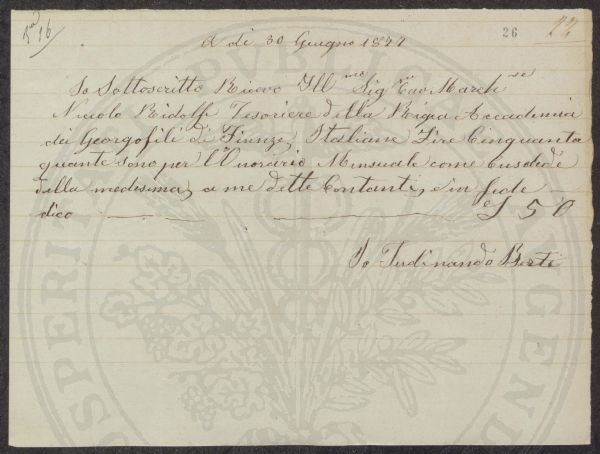 26
A di 30 Giugno 1877
Io Sottoscritto Ricevo Ill mo Sig Cav March se
Niccolo Ridolfi Tesoriere della Regia Accademia
dei Georgofili di Firenze, Italiane Lire Cinquanta
quante sono per l'Onorario Mensuale come Custode
della medesima, a me dette Contanti, e in fede
dico £ 50
Io Ferdinando Berti
PROSPERITÀ
PUBBLICA